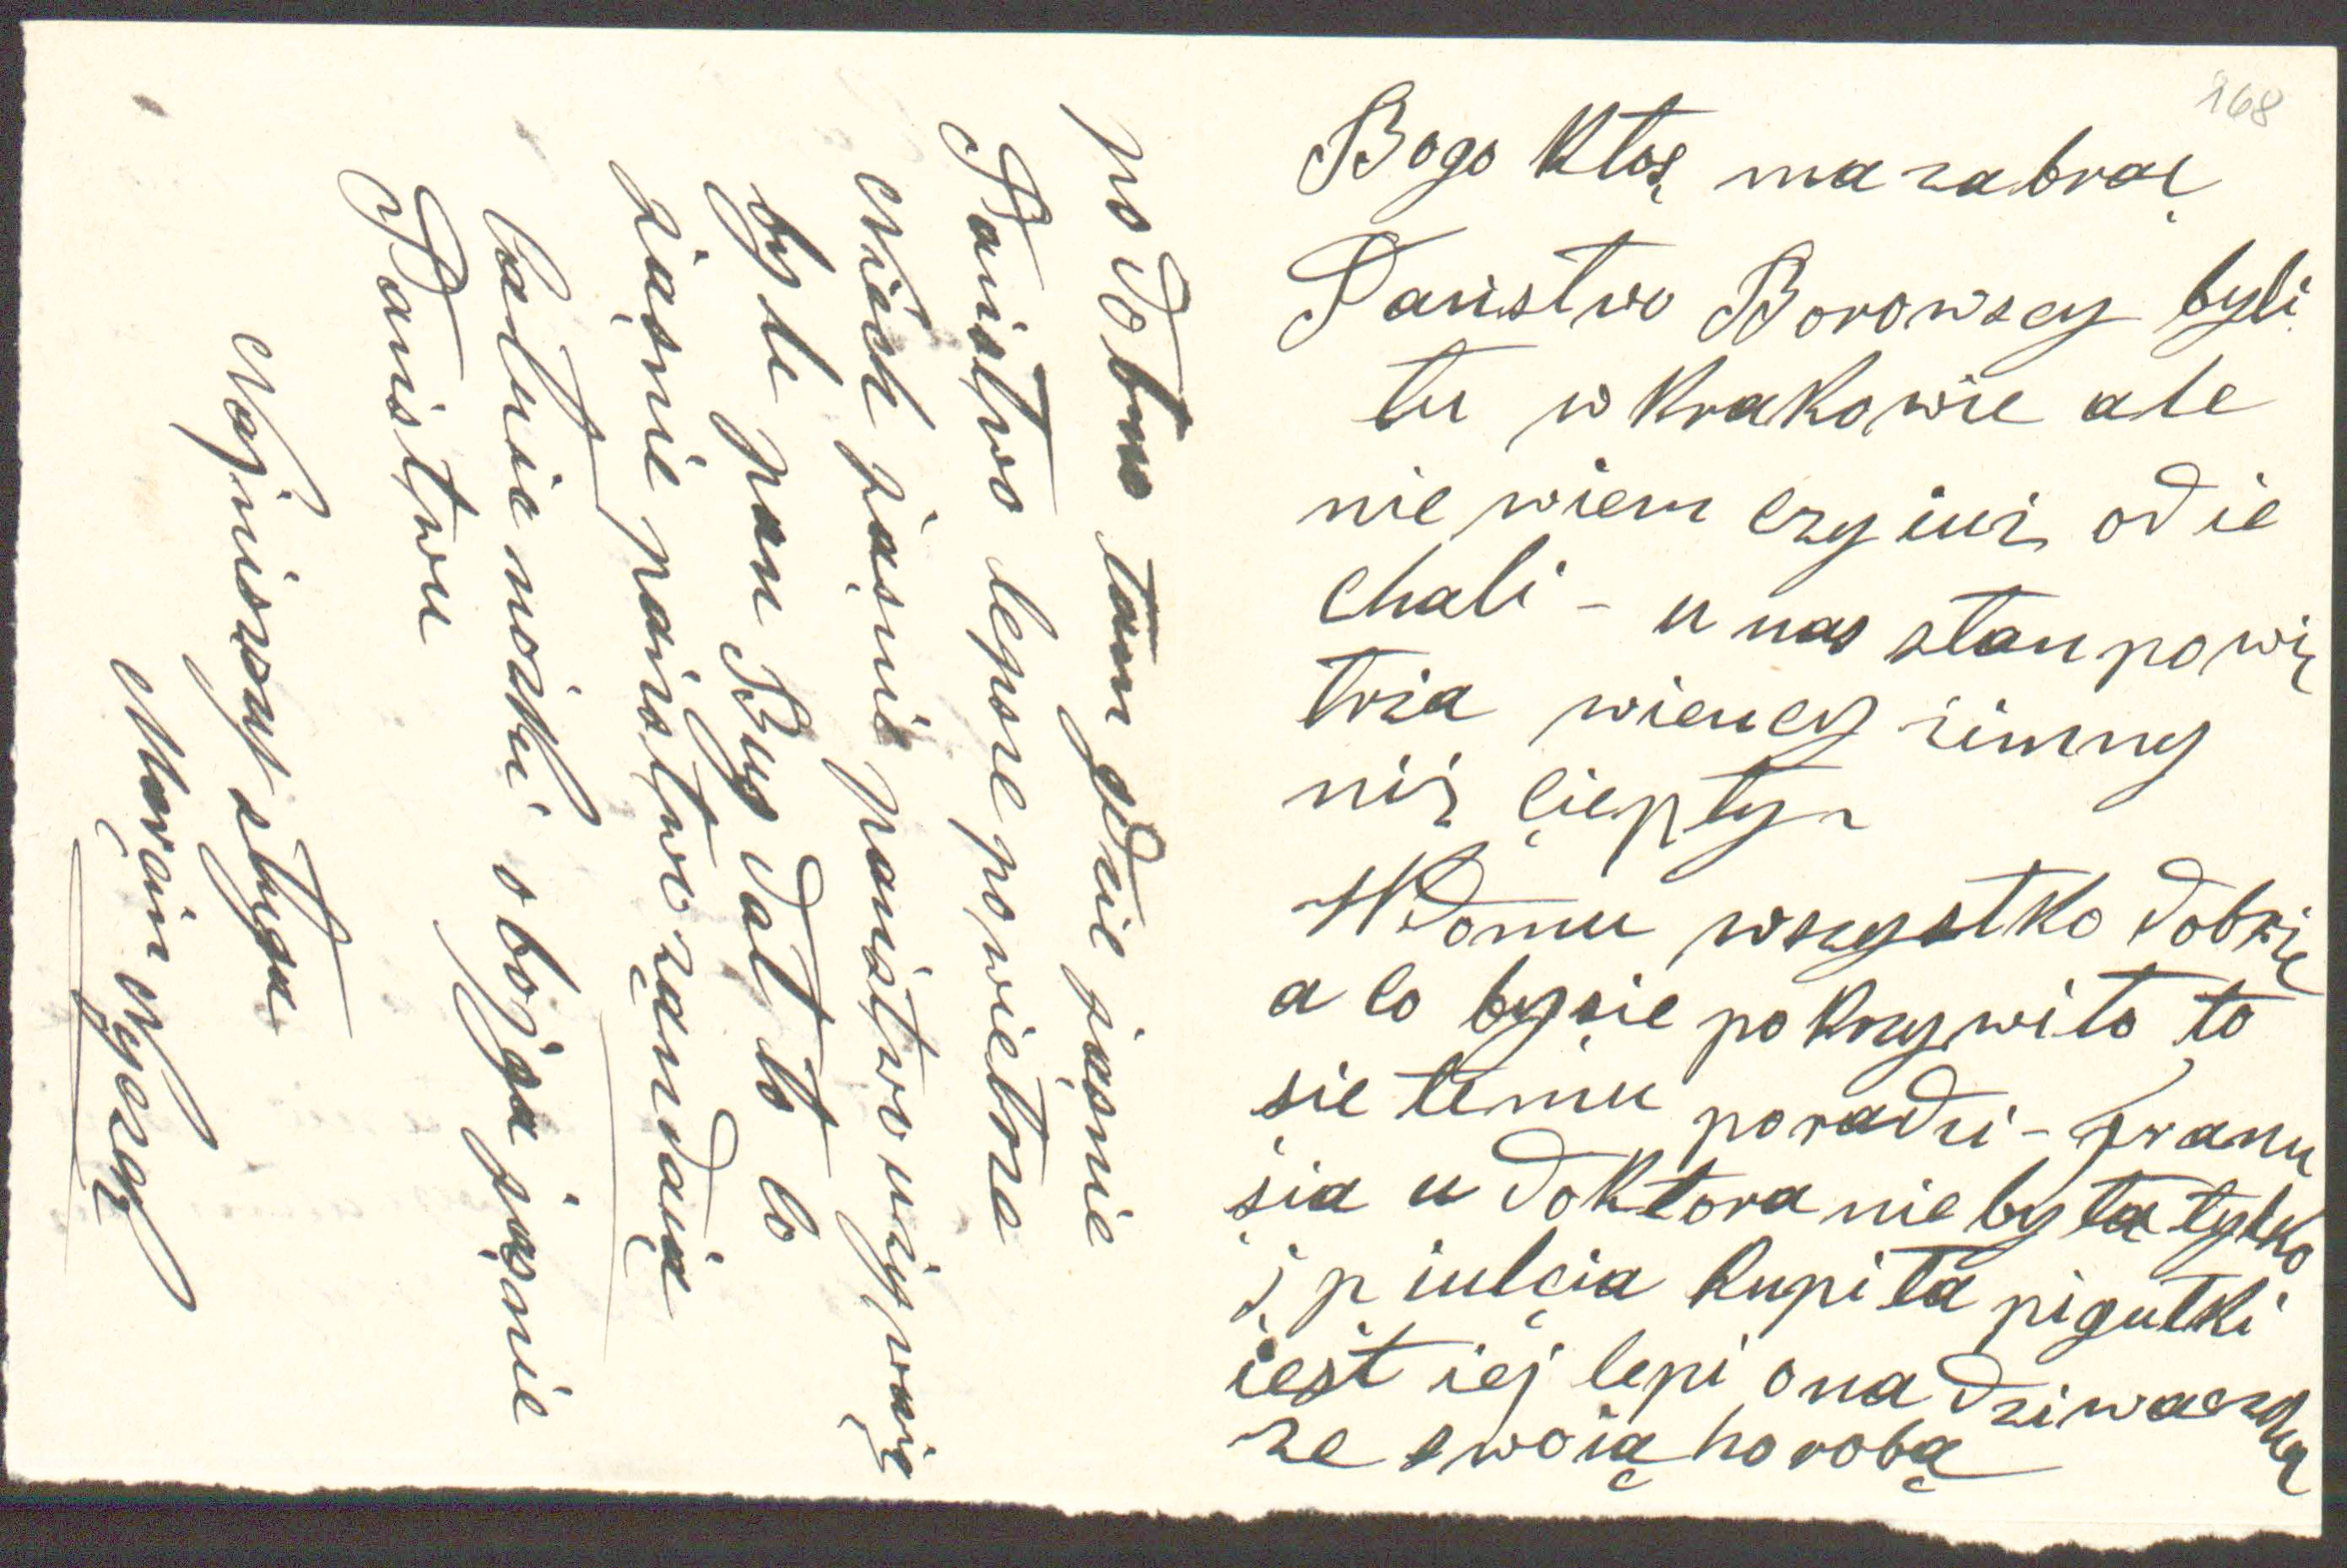 168
Bogo Ktoś ma zabrać
Państwo Borowscy byli
tu w Krakowie ale
nie wiem czy iuż odie
chali - u nas stan powię
trza wiency zimny
niż ciepły -
W Domu wszystko dobrzie
a co by sie pokrzywiło to
sie temu poradzi - Franu
sia u doktora nie była tylko
j p iulcia kupiła pigułki
iest iej lepi ona dziwaczka
ze swoią horobą
podobno tam gdzie jaśnie
Państwo lepsze powietrza
Niech jaśnie państwo używaię
byle pan Bug dał to co
jaśnie państwo rząndaią
całuie nożki obojga jaśnie
Państwu
Najniższy sługa
Marcin